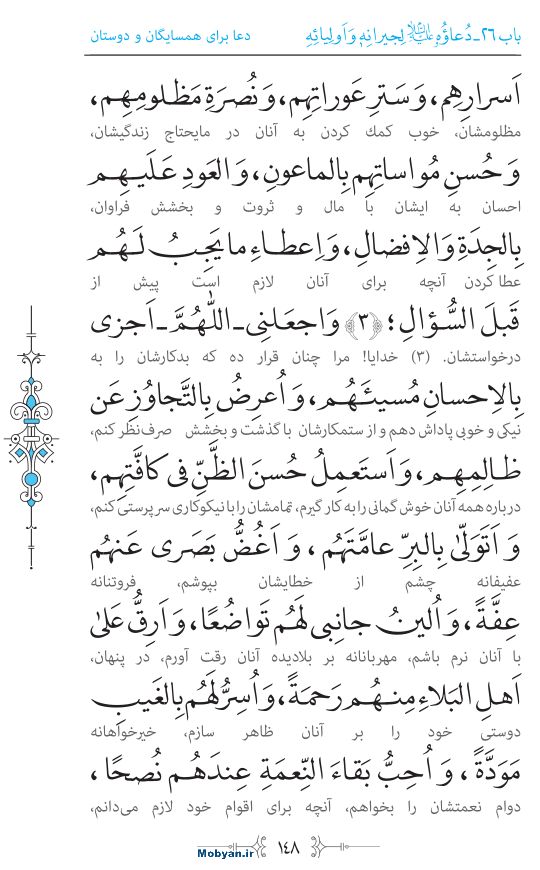 باب ۲۶- دُعاؤُهُ علیه‌السلام لِجیرانِهِ وَ اَولِیائِهِ
دعا برای همسایگان و دوستان
اَسرارِهِم، وَ سَترِ عَوراتِهِم، وَ نُصرَةِ مَظلومِهِم،
مظلومشان، خوب کمك کردن به آنان در مایحتاج زندگیشان،
وَ حُسنِ مُواساتِهِم بِالماعونِ، وَ العَودِ عَلَیهِم
احسان به ایشان با مال و ثروت و بخشش فراوان،
بِالجِدَةِ وَ الاِفضالِ، وَ اِعطاءِ ما یَجِبُ لَهُم
عطا کردن آنچه برای آنان لازم است پیش از
قَبلَ السُّؤالِ؛ ﴿۳﴾ وَ اجعَلنی-اللّٰهُمَّ-اَجزی
درخواستشان. (۳) خدایا! مرا چنان قرار ده که بدکارشان را به
بِالاِحسانِ مُسیئَهُم، وَ اُعرِضُ بِالتَّجاوُزِ عَن
نیکی و خوبی پاداش دهم و از ستمکارشان با گذشت و بخشش صرف‌نظر کنم،
ظالِمِهِم، وَ اَستَعمِلُ حُسنَ الظَّنِّ فی کافَّتِهِم،
درباره همه آنان خوش گمانی را به کار گیرم، تمامشان را با نیکوکاری سرپرستی کنم،
وَ اَتَوَلّیٰ بِالبِرِّ عامَّتَهُم، وَ اَغُضُّ بَصَری عَنهُم
عفیفانه چشم از خطایشان بپوشم، فروتنانه
عِفَّةً، وَ اُلینُ جانِبی لَهُم تَواضُعًا، وَ اَرِقُّ عَلیٰ
با آنان نرم باشم، مهربانانه بر بلادیده آنان رقت آورم، در پنهان،
اَهلِ البَلاءِ مِنهُم رَحمَةً، وَ اُسِرُّ لَهُم بِالغَیبِ
دوستی خود را بر آنان ظاهر سازم، خیرخواهانه
مَوَدَّةً، وَ اُحِبُّ بَقاءَ النِّعمَةِ عِندَهُم نُصحًا،
دوام نعمتشان را بخواهم، آنچه برای اقوام خود لازم می‌دانم،
۱۴۸
Mobyan.ir